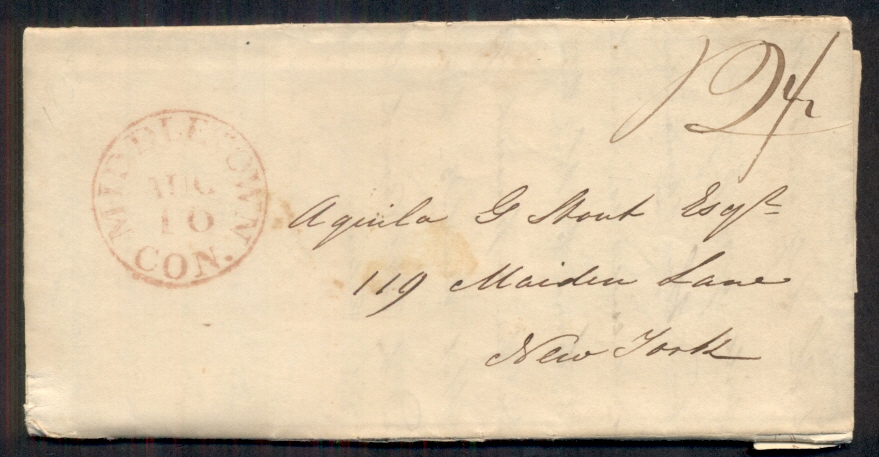 12 1/2
MIDDLETOWN
AUG
10
CON.
Aquila G Stout Esqr
119 Maiden Lane
New York